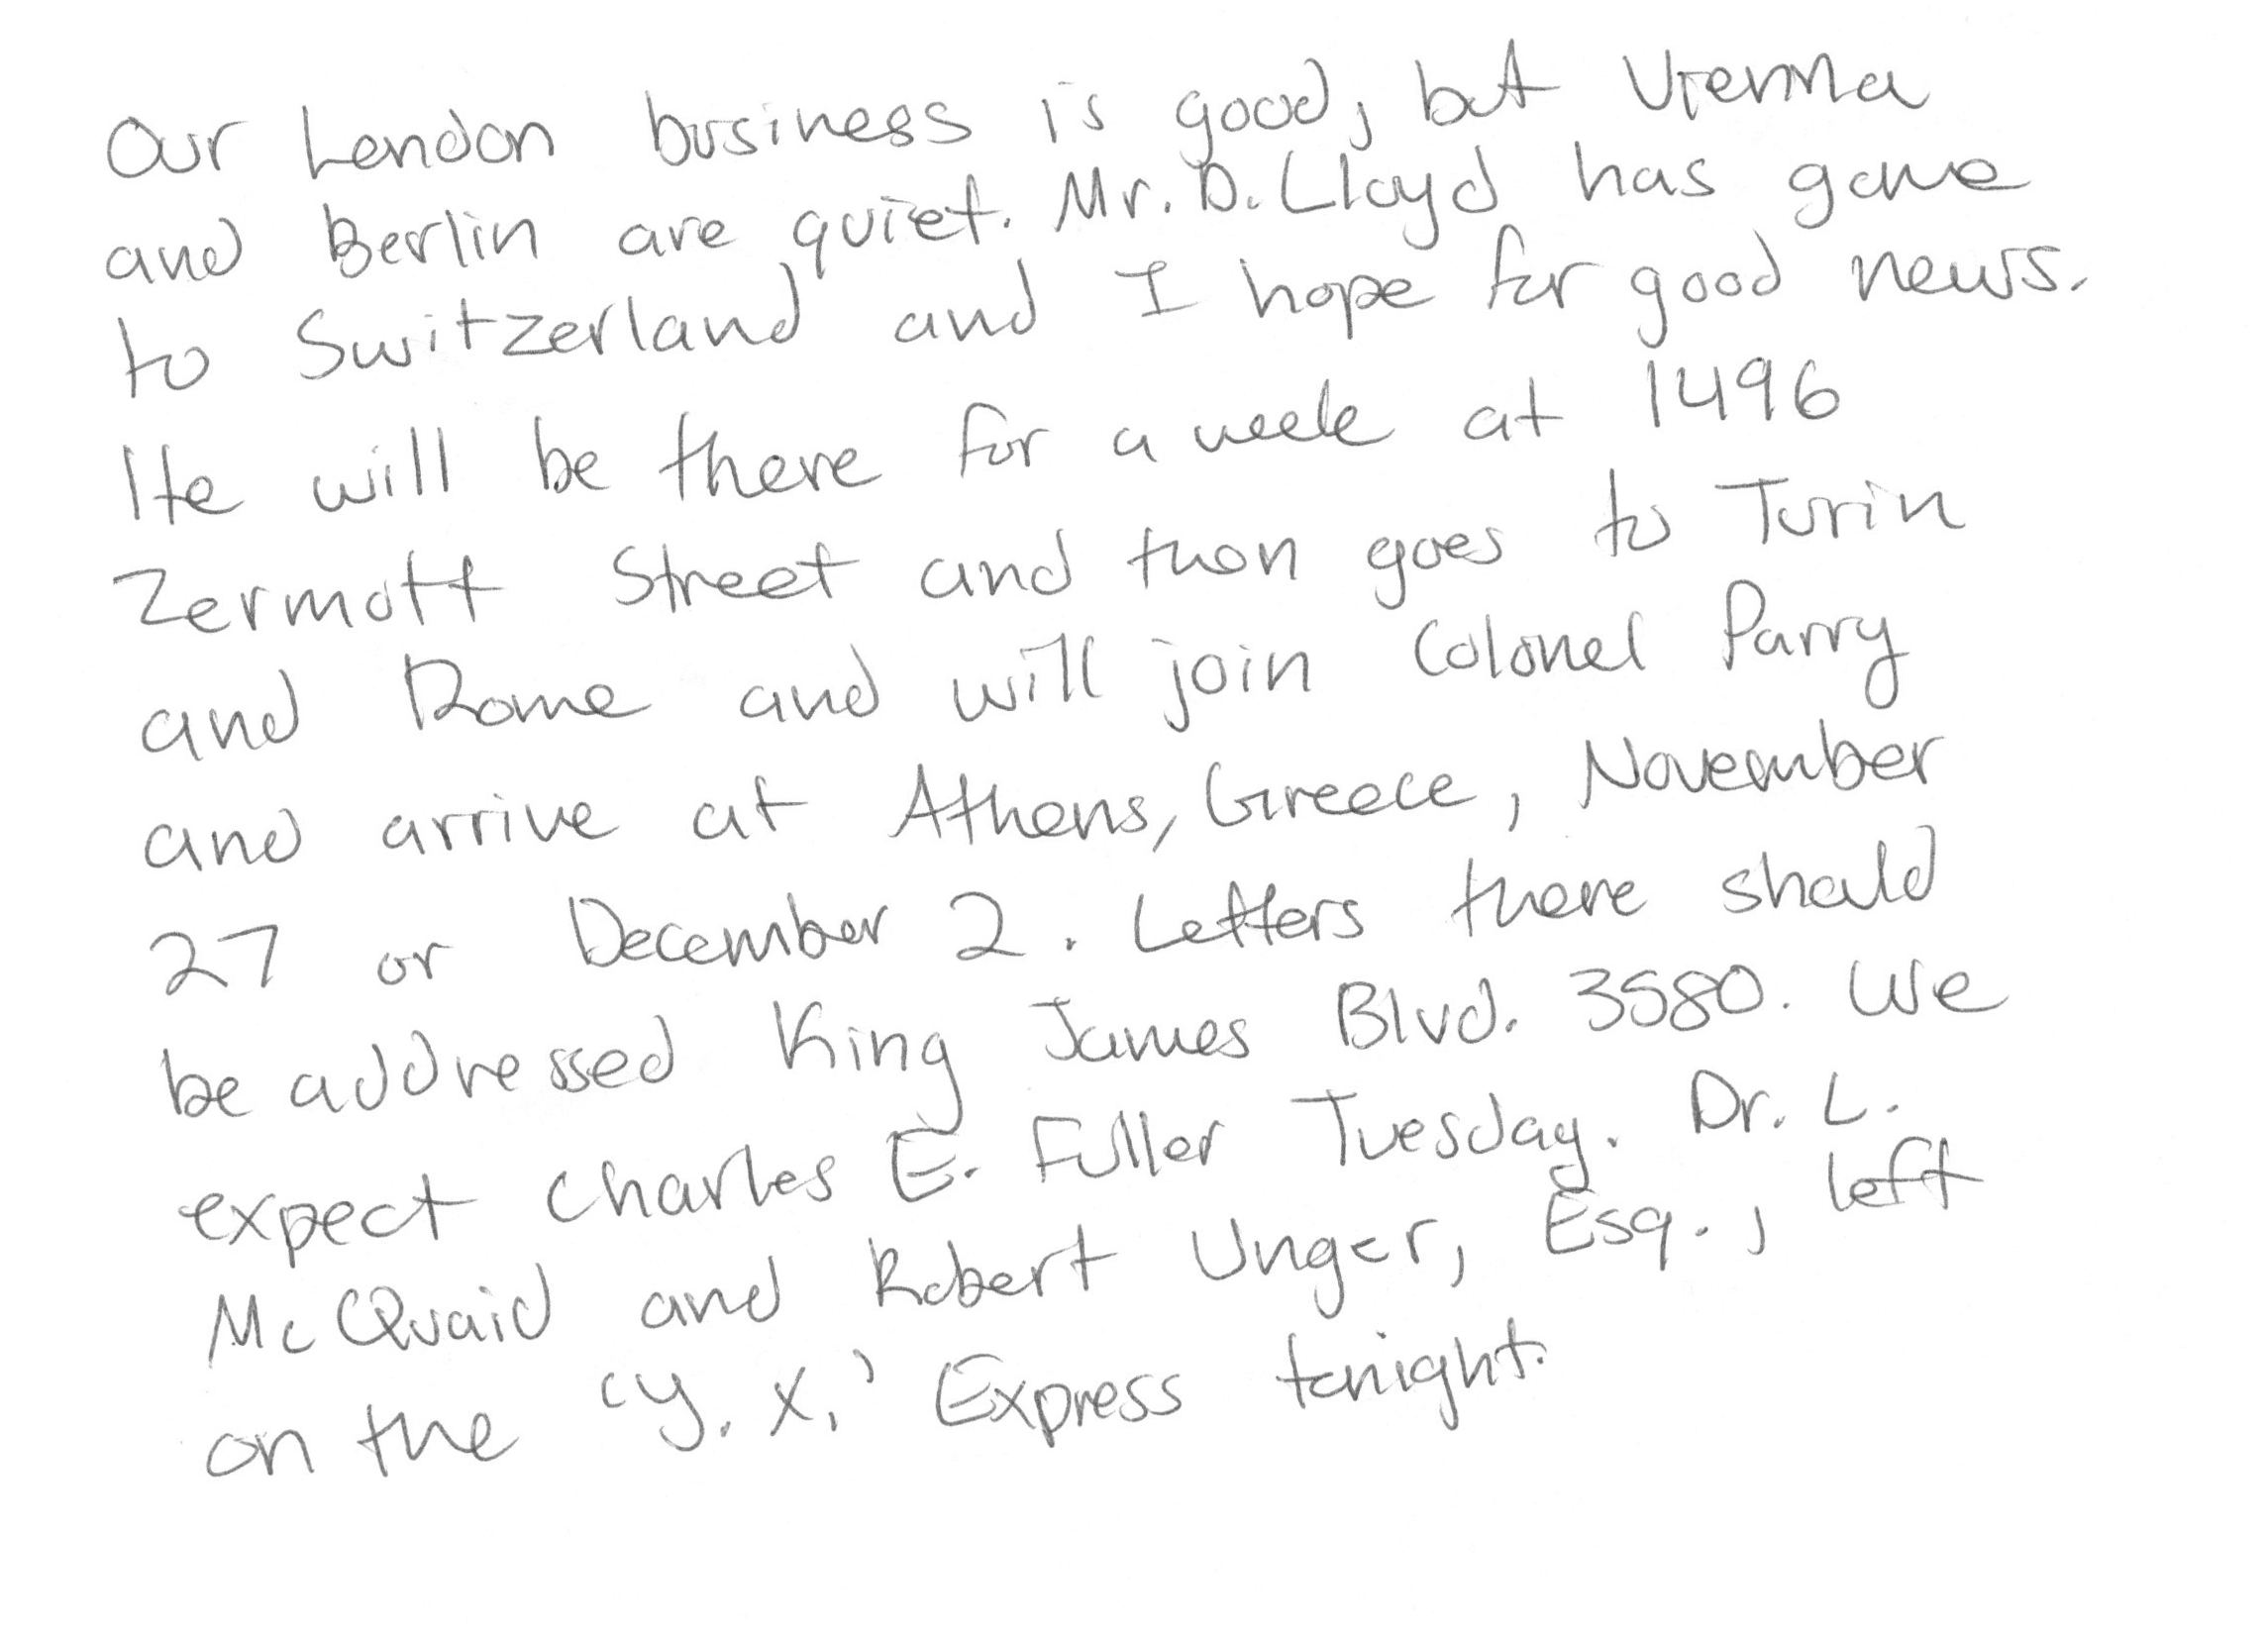 Our London business is good, but Vienna
and Berlin are quiet. Mr. D. Lloyd has gone
to Switzerland and I hope for good news.
He will be there for a week at 1496
Zermott Street and then goes to Turin
and Rome and will join Colonel Parry
and arrive at Athens, Greece, November
27 or December 2. Letters there should
be addressed King James Blvd. 3580. We
expect Charles E. Fuller Tuesday. Dr. L.
McQuaid and Robert Unger, Esq., left
on the 'Y. X.' Express tonight.